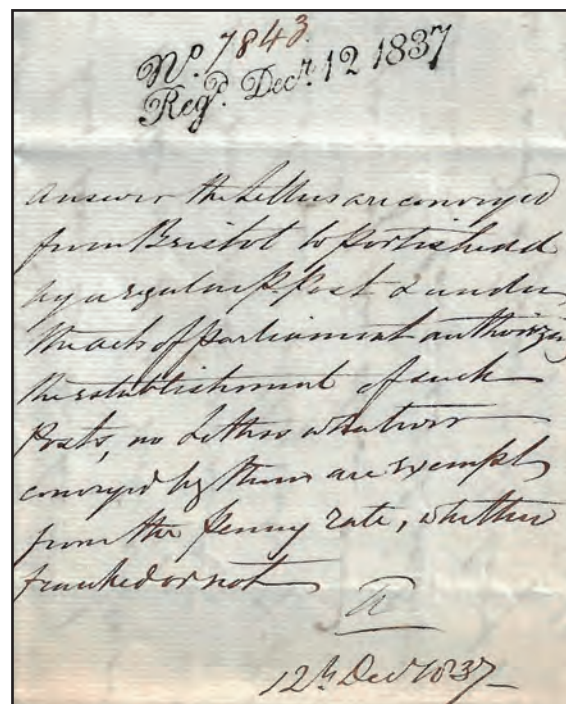 No. 7843.
Regd. Decr. 12 1837
answer the Letters are conveyed
from Bristol to Portishead
by a regular P. post & under
the acts of parliament authorizing
the establishment of such
Posts, no Letters whatever
conveyed by them are exempt
from the penny rate, whether
franked or not
12th Decr 1837